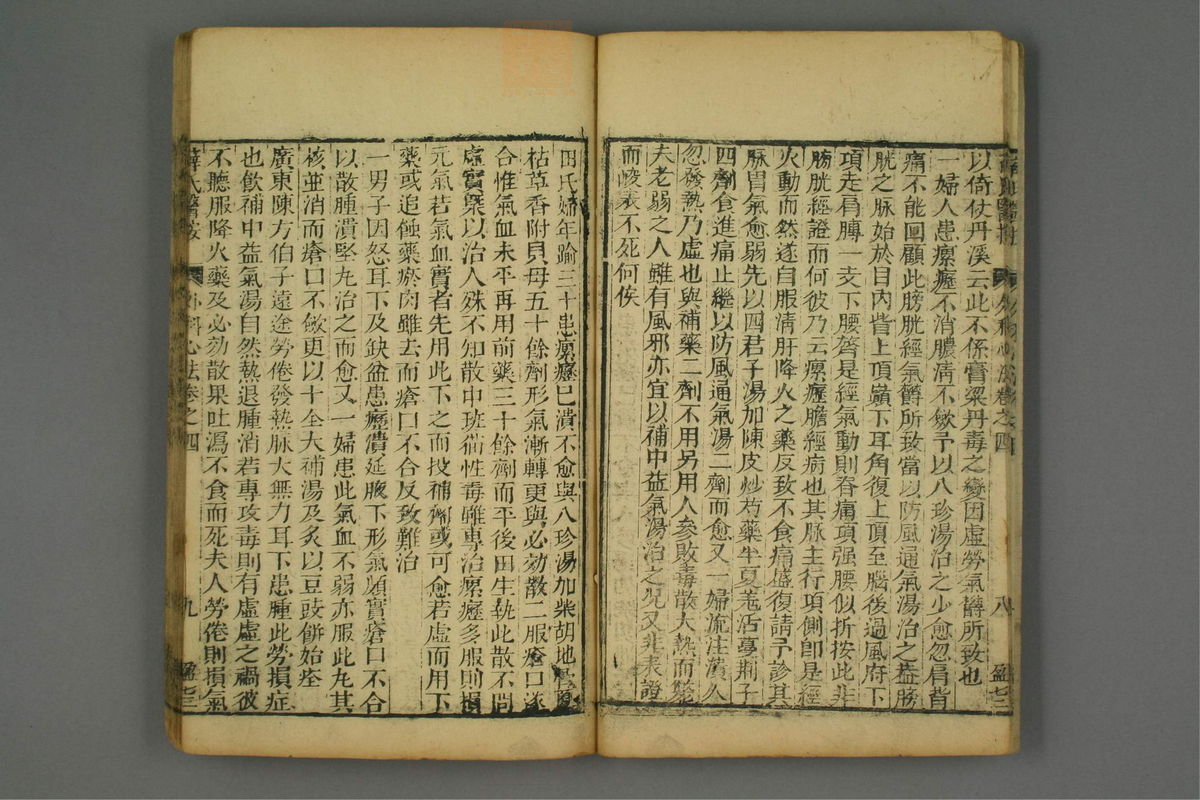 以倚仗丹溪云此不係膏粱丹毒之變因虛勞氣欝所致也
一婦人患瘰癧不消膿淸不歛予以八珍湯治之少愈忽肩背
痛不能回顧此膀胱經氣欝所致當以防風通氣湯治之葢膀
胱之脉始於目內眥上頂巔下耳角復上頂至腦後過風府下
項走肩膊一支下腰膂是經氣動則脊痛項强腰似折按此非
膀胱經證而何彼乃云瘰癧膽經病也其脉主行項側卽是經
火動而然遂自服淸肝降火之藥反致不食痛盛復請予診其
脉胃氣愈弱先以四君子湯加陳皮炒芍藥半夏羗活蔓荆子
四劑食進痛止繼以防風通氣湯二劑而愈又一婦流注潰久
忽發熱乃虛也與補藥二劑不用另用人參敗毒散大熱而斃
夫老弱之人雖有風邪亦宜以補中益氣湯治之况又非表證
而峻表不死何俟
外科心法卷之四
八
盈七三
田氏婦年踰三十患瘰癧巳潰不愈與八珍湯加柴胡地骨夏
枯草香附貝母五十餘劑形氣漸轉更與必効散二服瘡口遂
合惟氣血未平再用前藥三十餘劑而平後田生執此散不問
虛實槩以治人殊不知散中班猫性毒雖專治瘰癧多服則損
元氣若氣血實者先用此下之而投補劑或可愈若虛而用下
藥或追蝕藥瘀肉雖去而瘡口不合反致難治
一男子因怒耳下及缺盆患癧潰延腋下形氣頗實瘡口不合
以散腫潰堅丸治之而愈又一婦患此氣血不弱亦服此丸其
核並消而瘡口不歛更以十全大補湯及炙以豆豉餅始痊
廣東陳方伯子遠途勞倦發熱脉大無力耳下患腫此勞損症
也飮補中益氣湯自然熱退腫消若專攻毒則有虛虛之禍彼
不聽服降火藥及必効散果吐瀉不食而死夫人勞倦則損氣
薛氏醫按
外科心法卷之四
九
盈七三